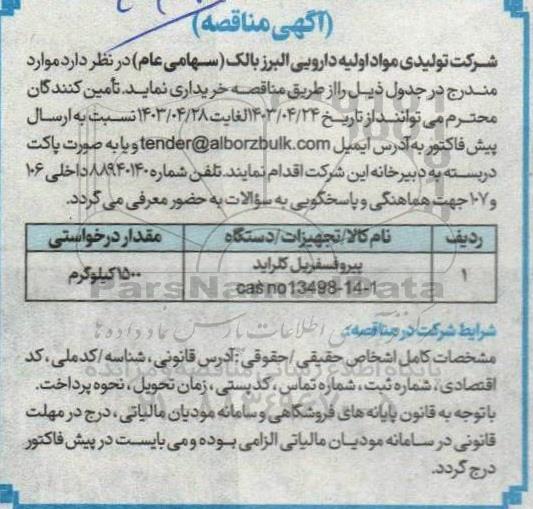 (آگهی مناقصه)
شرکت تولیدی مواد اولیه دارویی البرز بالک (سهامی عام) در نظر دارد موارد
مندرج در جدول ذیل را از طریق مناقصه خریداری نماید. تأمین کنندگان
محترم می توانند از تاریخ ۱۴۰۳/۰۴/۲۴ لغایت ۱۴۰۳/۰۴/۲۸ نسبت به ارسال
پیش فاکتور به آدرس ایمیل tender@alborzbulk.com و یا به صورت پاکت
دربسته به دبیرخانه این شرکت اقدام نمایند. تلفن شماره ۸۸۹۴۰۱۴۰ داخلی ۱۰۶
و ۱۰۷ جهت هماهنگی و پاسخگویی به سؤالات به حضور معرفی می گردد.
ردیف نام کالا/تجهیزات/دستگاه مقدار درخواستی
۱ پیروفسفریل کلراید ۱۵۰۰ کیلوگرم
cas no 13498-14-1
ParsNamadData
شرایط شرکت در مناقصه:
مشخصات کامل اشخاص حقیقی/حقوقی: آدرس قانونی، شناسه/کد ملی، کد
اقتصادی، شماره ثبت، شماره تماس، کدپستی، زمان تحویل، نحوه پرداخت.
با توجه به قانون پایانه های فروشگاهی و سامانه مودیان مالیاتی، درج در مهلت
قانونی در سامانه مودیان مالیاتی الزامی بوده و می بایست در پیش فاکتور
درج گردد.